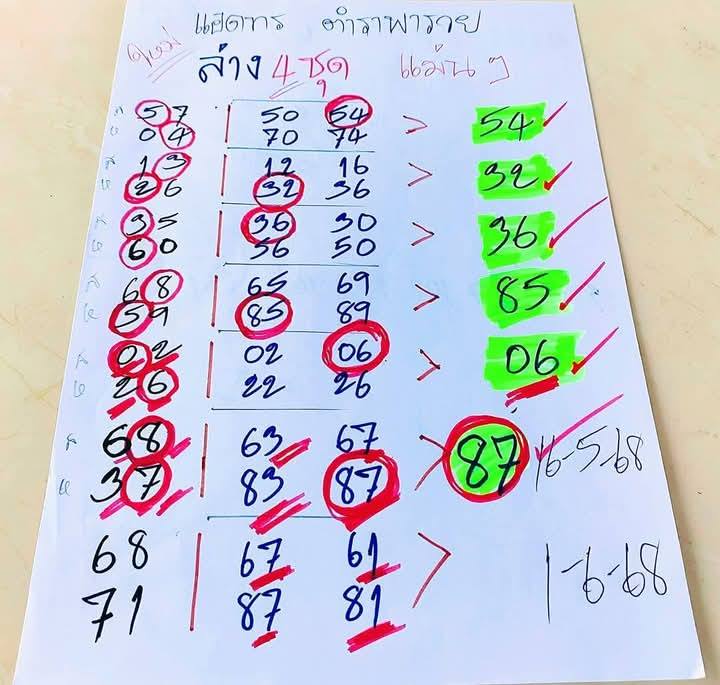 แฮดทร ตำราพารวย
ล่าง 4 ชุด แม่นๆ
57 | 50 54 > 54
04 70 74
13 | 12 16 > 32
26 32 36
35 | 36 30 > 36
60 56 50
68 | 65 69 > 85
59 85 89
02 | 02 06 > 06
26 22 26
68 | 63 67 > 87 16-5-68
37 83 87
68 | 67 61 > 1-6-68
71 87 81